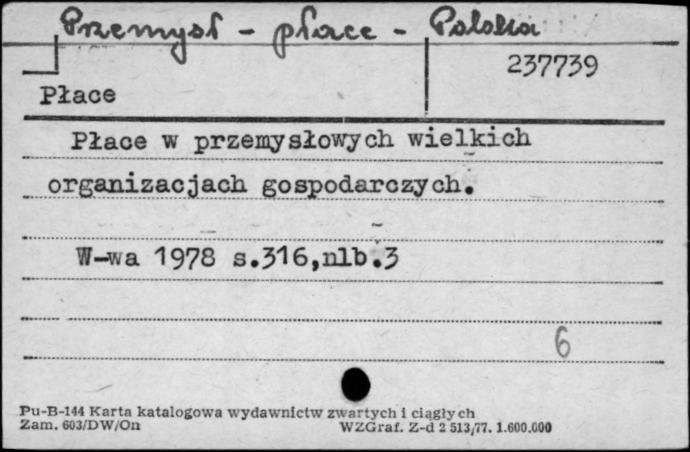 Przemysł - płace - Polska
237739
Płace
Płace w przemysłowych wielkich
organizacjach gospodarczych.
W-wa 1978 s.316,nlb.3
6
Pu-B-144 Karta katalogowa wydawnictw zwartych i ciągłych
Zam. 603/DW/On WZGraf. Z-d 2 513/77. 1.600.000